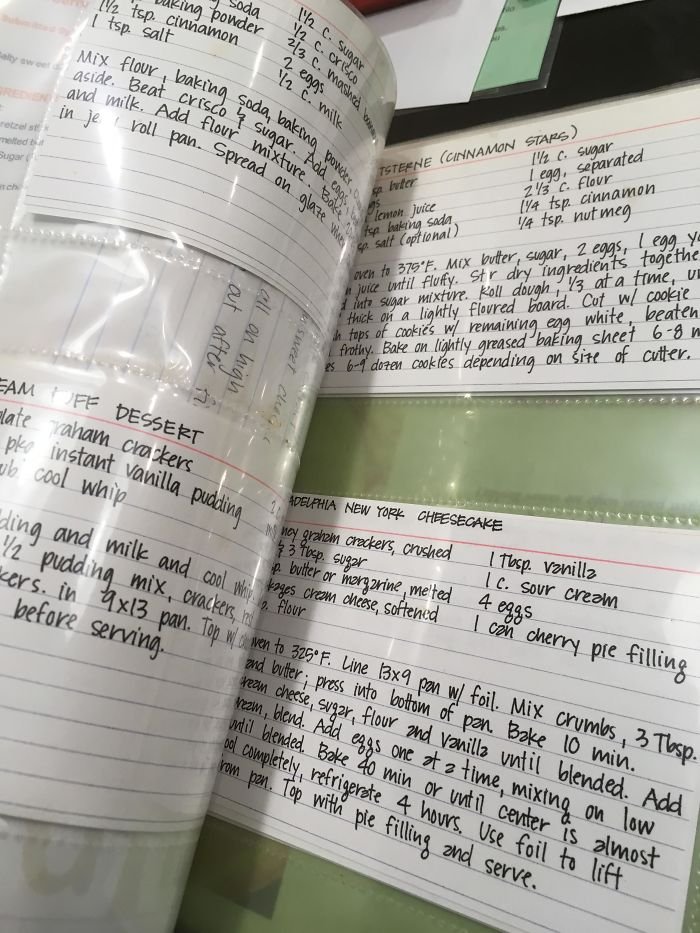 soda
baking powder
1 1/2 tsp. cinnamon
1 tsp. salt
1 1/2 C. sugar
1/2 C. crisco
2/3 C. mashed
2 eggs
1/2 C. milk
Mix flour, baking soda, baking powder,
aside. Beat crisco & sugar. Add eggs,
and milk. Add flour mixture. Bake
in roll pan. Spread on glaze
out after
EAM PUFF DESSERT
late graham crackers
pkg instant vanilla pudding
ub cool whip
ding and milk and cool whip
1/2 pudding mix, crackers,
kers. in 9x13 pan. Top w/
before serving.
TSTERNE (CINNAMON STARS)
butter
lemon juice
tsp. baking soda
sp. salt (optional)
1 1/2 C. sugar
1 egg, separated
2 1/3 C. flour
1 1/4 tsp. cinnamon
1/4 tsp. nutmeg
oven to 375°F. Mix butter, sugar, 2 eggs, 1 egg
juice until fluffy. Stir dry ingredients togethe
into sugar mixture. Roll dough, 1/3 at a time,
thick on a lightly floured board. Cut w/ cookie
tops of cookies w/ remaining egg white, beaten
frothy. Bake on lightly greased baking sheet 6-8
es 6-9 dozen cookies depending on size of cutter.
ADELPHIA NEW YORK CHEESECAKE
ney graham crackers, crushed
3 Tbsp. sugar
butter or margarine, melted
kages cream cheese, softened
flour
1 Tbsp. vanilla
1 C. sour cream
4 eggs
1 can cherry pie filling
oven to 325°F. Line 13x9 pan w/ foil. Mix crumbs, 3 Tbsp.
and butter; press into bottom of pan. Bake 10 min.
ream cheese, sugar, flour and vanilla until blended. Add
ream, blend. Add eggs one at a time, mixing on low
until blended. Bake 40 min or until center is almost
ool completely, refrigerate 4 hours. Use foil to lift
rom pan. Top with pie filling and serve.